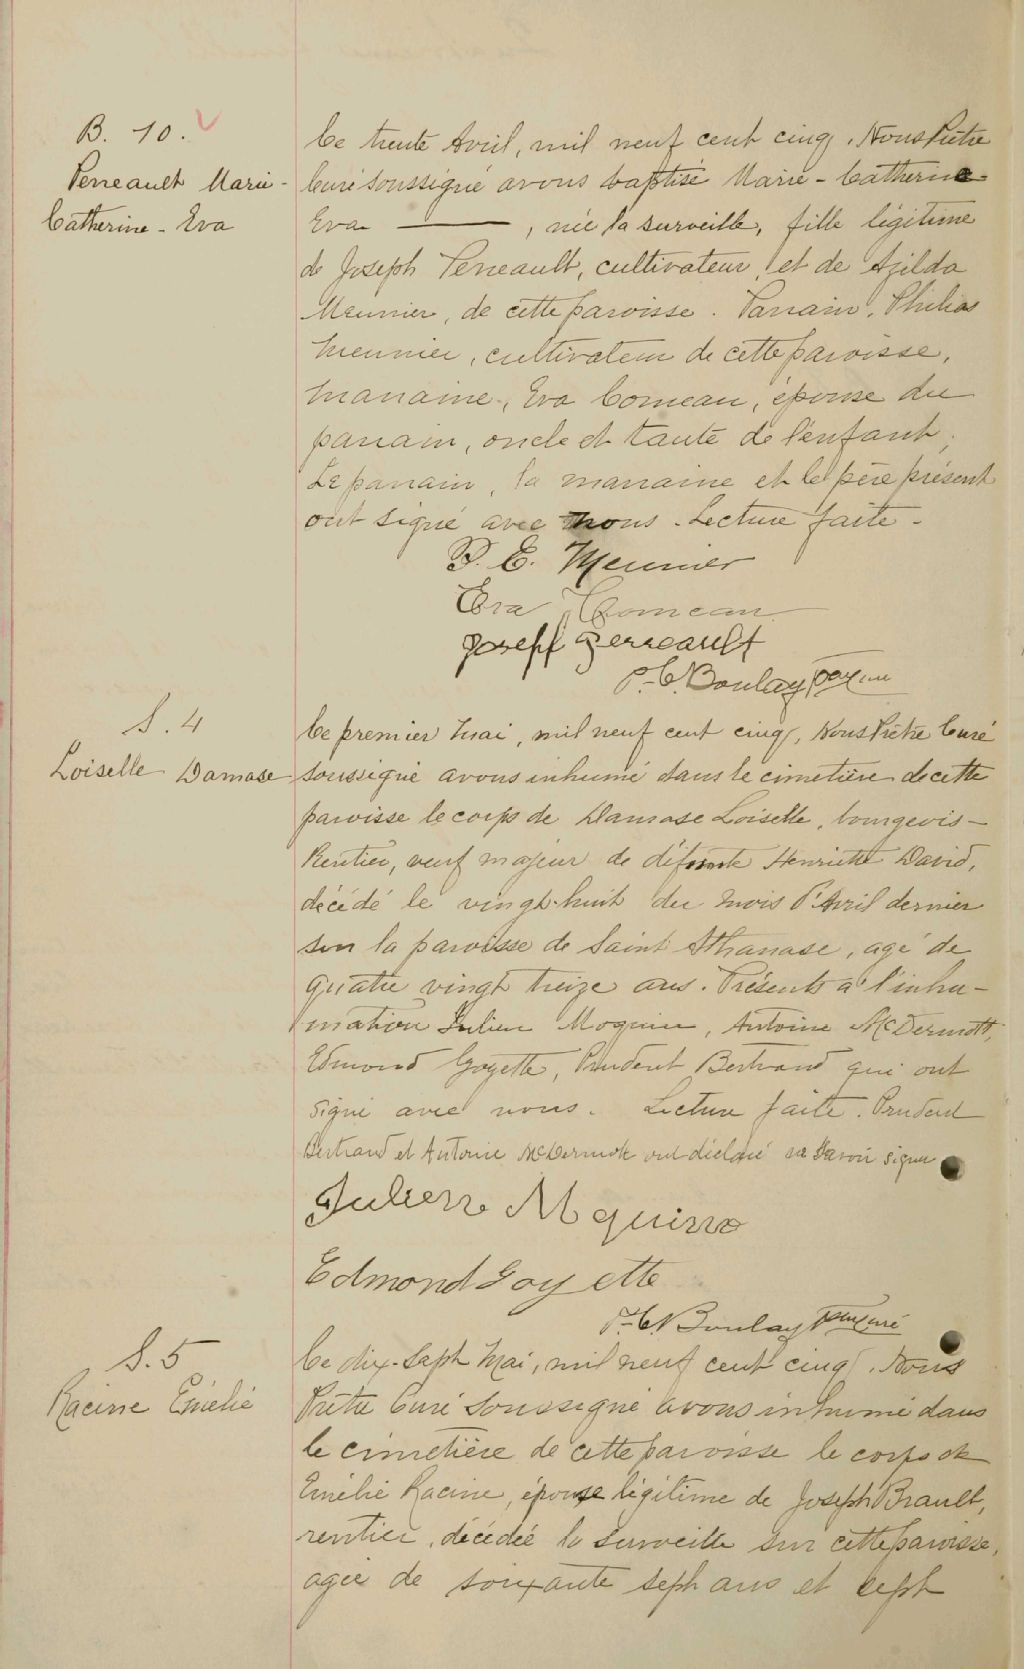 B. 10.
Perreault Marie-
Catherine-Eva
Ce trente Avril, mil neuf cent cinq, Nous Prêtre
Curé soussigné avons baptisé Marie-Catherine-
Eva ———, née la surveille, fille légitime
de Joseph Perreault, cultivateur, et de Azilda
Meunier, de cette paroisse. Parrain, Philias
Meunier, cultivateur de cette paroisse,
marraine, Eva Comeau, épouse du
parrain, oncle et tante de l'enfant,
Le parrain, la marraine et le père présent
ont signé avec nous. Lecture faite.
P. E. Meunier
Eva Comeau
Joseph Perreault
P.-C. Boulay ptre curé
S. 4
Loiselle Damase
Ce premier Mai, mil neuf cent cinq, Nous Prêtre Curé
soussigné avons inhumé dans le cimetière de cette
paroisse le corps de Damase Loiselle, bourgeois-
Rentier, veuf majeur de défunte Henriette David,
décédé le vingt-huit du mois d'Avril dernier
sur la paroisse de Saint Athanase, agé de
quatre vingt treize ans. Présents à l'inhu-
mation Julien Moquin, Antoine McDermott,
Edmond Goyette, Prudent Bertrand qui ont
signé avec nous. Lecture faite. Prudent
Bertrand et Antoine McDermott ont déclaré ne savoir signer
Julien Moquin
Edmond Goyette
P.-C. Boulay ptre curé
S. 5
Racine Emélie
Ce dix-sept Mai, mil neuf cent cinq, Nous
Prêtre Curé soussigné avons inhumé dans
le cimetière de cette paroisse le corps de
Emélie Racine, épouse légitime de Joseph Brault,
rentier, décédée la surveille sur cette paroisse,
agée de soixante sept ans et sept